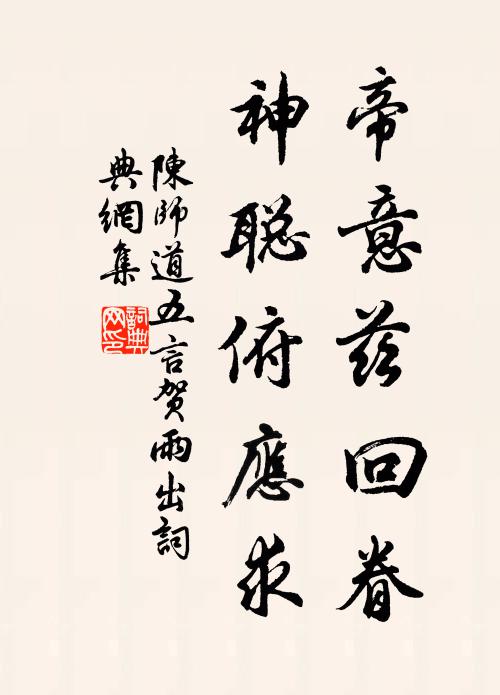 帝意茲回眷
神聪俯應求
陳師道五言賀雨出詞
典網集
詞典网印